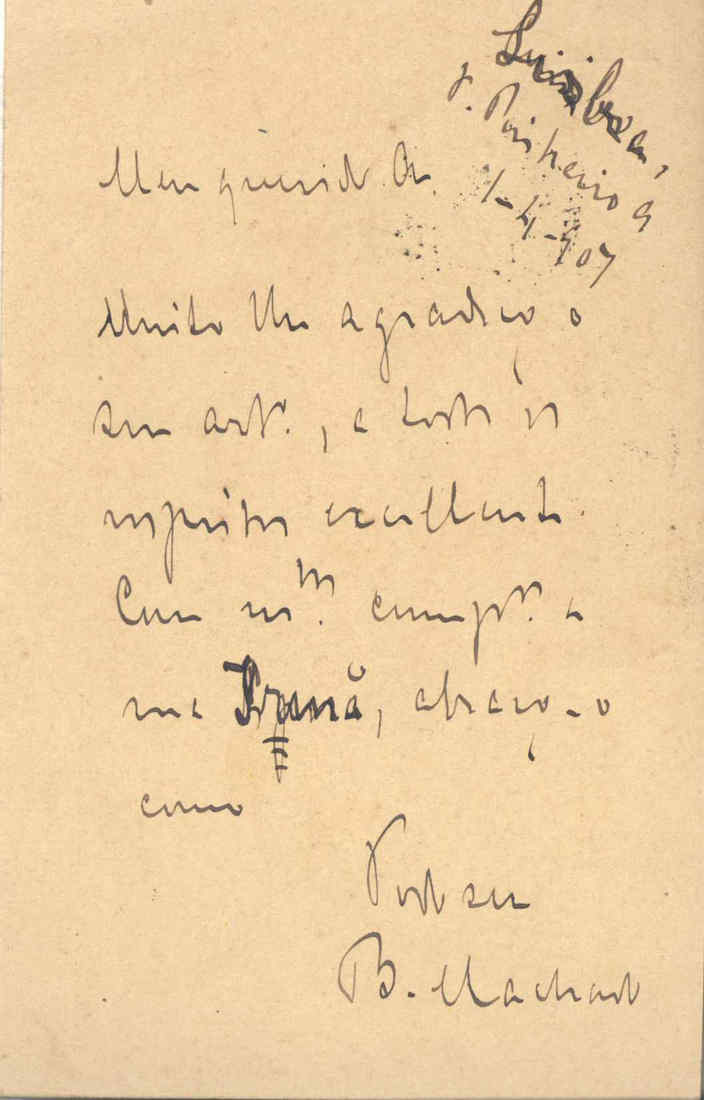 Coimbra,
1-4-907
Meu querido A.
Muito lhe agradeço o
seu artº., a todos os
respeitos excellente.
Com ms. cumptos. a
sua Irmã, abraça-o
como
Todo seu
B. Machado